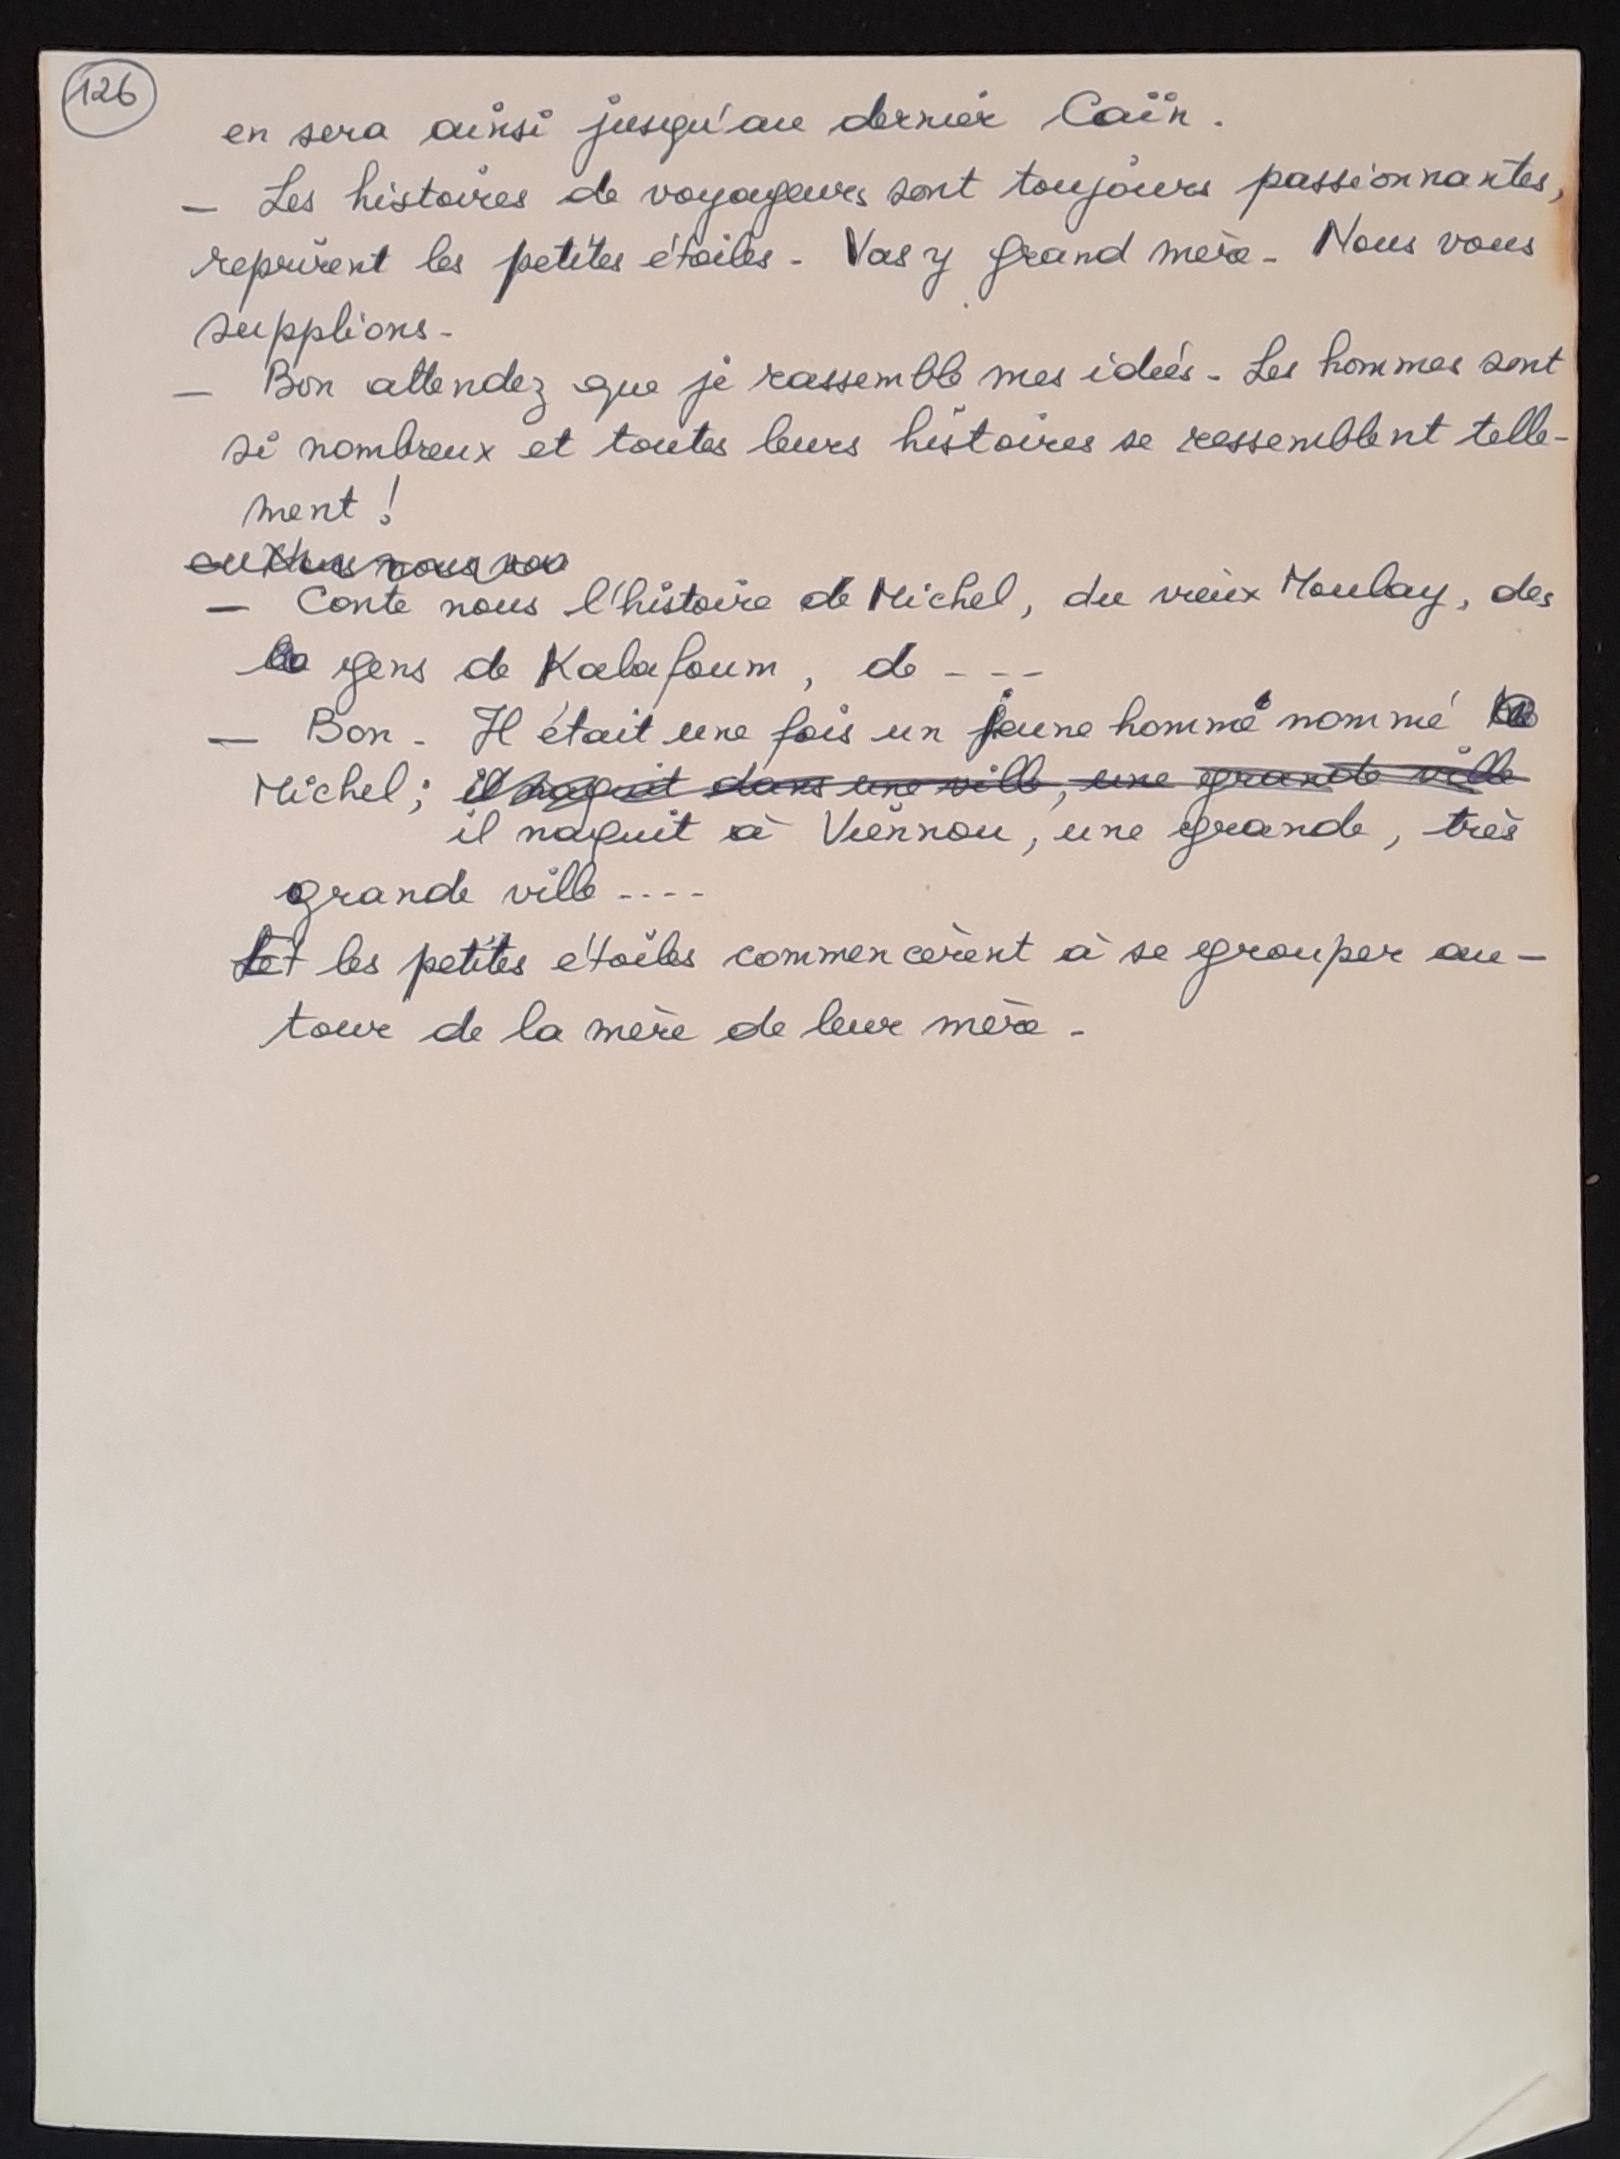 126
en sera ainsi jusqu'au dernier Caïn.
— Les histoires de voyageurs sont toujours passionnantes,
reprirent les petites étoiles - Vas y grand mère - Nous vous
supplions -
— Bon attendez que je rassemble mes idées - Les hommes sont
si nombreux et toutes leurs histoires se ressemblent telle-
ment !
— Conte nous l'histoire de Michel, du vieux Moulay, des
gens de Kalafoum, de - - -
— Bon - Il était une fois un jeune homme nommé
Michel ; il naquit dans une ville, une grande ville
il naquit à Viennou, une grande, très
grande ville - - - -
Et les petites étoiles commencèrent à se grouper au-
tour de la mère de leur mère -